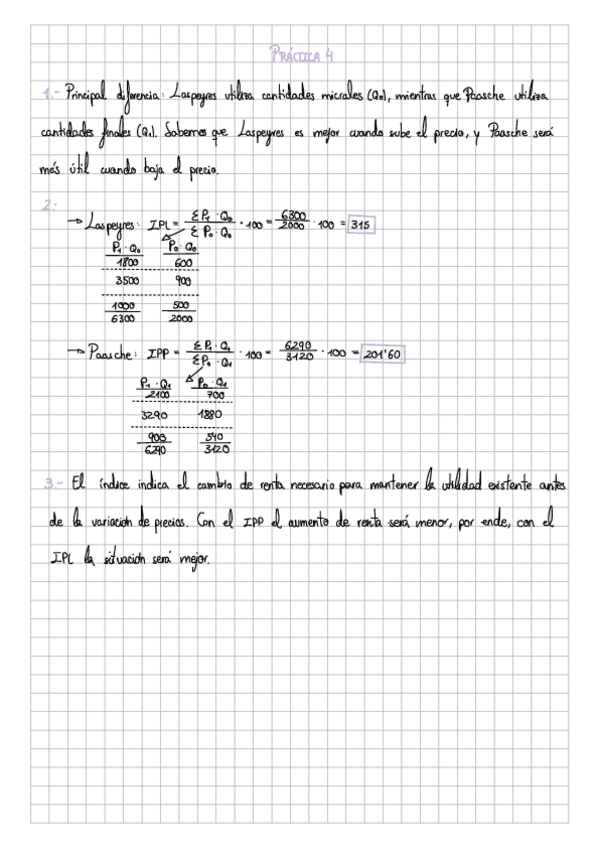 PRÁCTICA 4
1.- Principal diferencia: Laspeyres utiliza cantidades iniciales (Q₀), mientras que Paasche utiliza
cantidades finales (Q₁). Sabemos que Laspeyres es mejor cuando sube el precio, y Paasche será
más útil cuando baja el precio.
2.-
→ Laspeyres: IPL = Σ P₁ · Q₀ / Σ P₀ · Q₀ · 100 = 6300 / 2000 · 100 = 315
P₁ · Q₀ P₀ · Q₀
1800 600
3500 900
1000 500
6300 2000
→ Paasche: IPP = Σ P₁ · Q₁ / Σ P₀ · Q₁ · 100 = 6290 / 3120 · 100 = 201'60
P₁ · Q₁ P₀ · Q₁
2100 700
3290 1880
900 540
6290 3120
3.- El índice indica el cambio de renta necesario para mantener la utilidad existente antes
de la variación de precios. Con el IPP el aumento de renta será menor, por ende, con el
IPL la situación será mejor.